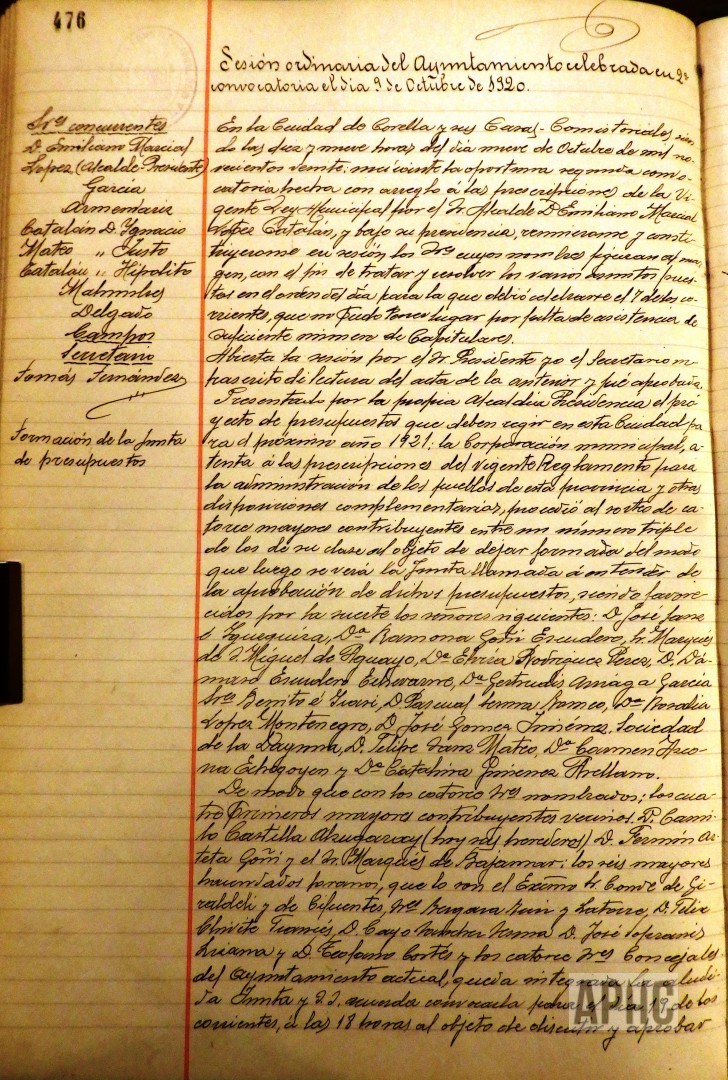 476
Sesión ordinaria del Ayuntamiento celebrada en 2ª
convocatoria el dia 9 de Octubre de 1920.
Sres concurrentes
D. Emiliano Marcial
Lopez (Alcalde-Presidente)
Garcia
Armendariz
Catalán D. Ignacio
Mateo " Justo
Catalán " Hipolito
Malumbres
Delgado
Campos
Secretario
Tomás Fernández
Formación de la Junta
de presupuestos
En la Ciudad de Corella y sus Casas-Consistoriales, sien
do las diez y nueve horas del dia nueve de Octubre de mil no
vecientos veinte: mediante la oportuna segunda convo
catoria hecha con arreglo á las prescripciones de la Vi
gente Ley Municipal por el Sr. Alcalde D. Emiliano Marcial
Lopez Catalan, y bajo su presidencia, reunieronse y consti
tuyeronse en sesión los Sres cuyos nombres figuran al mar
gen, con el fin de tratar y resolver los varios asuntos pues
tos en el orden del dia, para la que debió celebrarse el 7 de los co
rrientes, que no pudo tener lugar por falta de asistencia de
suficiente número de Capitulares.
Abierta la sesión por el Sr. Presidente yo el Secretario in
frascrito di lectura del acta de la anterior y fué aprobada.
Presentado por la propia Alcaldia Presidencia el pro
yecto de presupuestos que deben regir en esta Ciudad pa
ra el próximo año 1921: la Corporación municipal, a
tenta á las prescripciones del vigente Reglamento para
la administración de los pueblos de esta provincia y otras
disposiciones complementarias, procedió al sorteo de ca
torce mayores contribuyentes entre un número triple
de los de su clase al objeto de dejar formada del modo
que luego se verá la Junta llamada á entender de
la aprobación de dichos presupuestos, siendo favore
cidos por la suerte los señores siguientes: D. José Sanz
é Iguequiza, Dª Ramona Goñi Escudero, Sr. Marqués
de S. Miguel de Aguayo, Dª Elvira Rodriguez Perez, D. Dá
maso Escudero Echevarne, Dª Gertrudis Arriaga Garcia
Sres Benito é Irasi, D. Pascual Sesma Ramos, Dª Rosalia
Lopez Montenegro, D. José Gomez Jiménez, Sociedad
de la Dayuma, D. Felipe Sanz Mateo, Dª Carmen Azco
na Echegoyen y Dª Catalina Jimenez Arellano.
De modo que con los catorce Sres nombrados; los cua
tro primeros mayores contribuyentes vecinos. D. Cami
lo Castilla (hoy sus herederos) D. Fermin Ar
teta Goñi y el Sr. Marqués de Bajamar: los seis mayores
hacendados foranos, que lo son el Exmo Sr. Conde de Gi
raldeli y de Cifuentes, Sres Bergara Ruiz y Latorre, D. Felix
Chivite Francés, D. Cayo Sanchez Sesma D. José Sopranis
Lizama y D. Teofano Cortés y los catorce Sres Concejales
del Ayuntamiento actual, queda integrada la aludi
da Junta y S.S. acuerda convocarla para el dia 19 de los
corrientes, á las 18 horas al objeto de discutir y aprobar
APHC